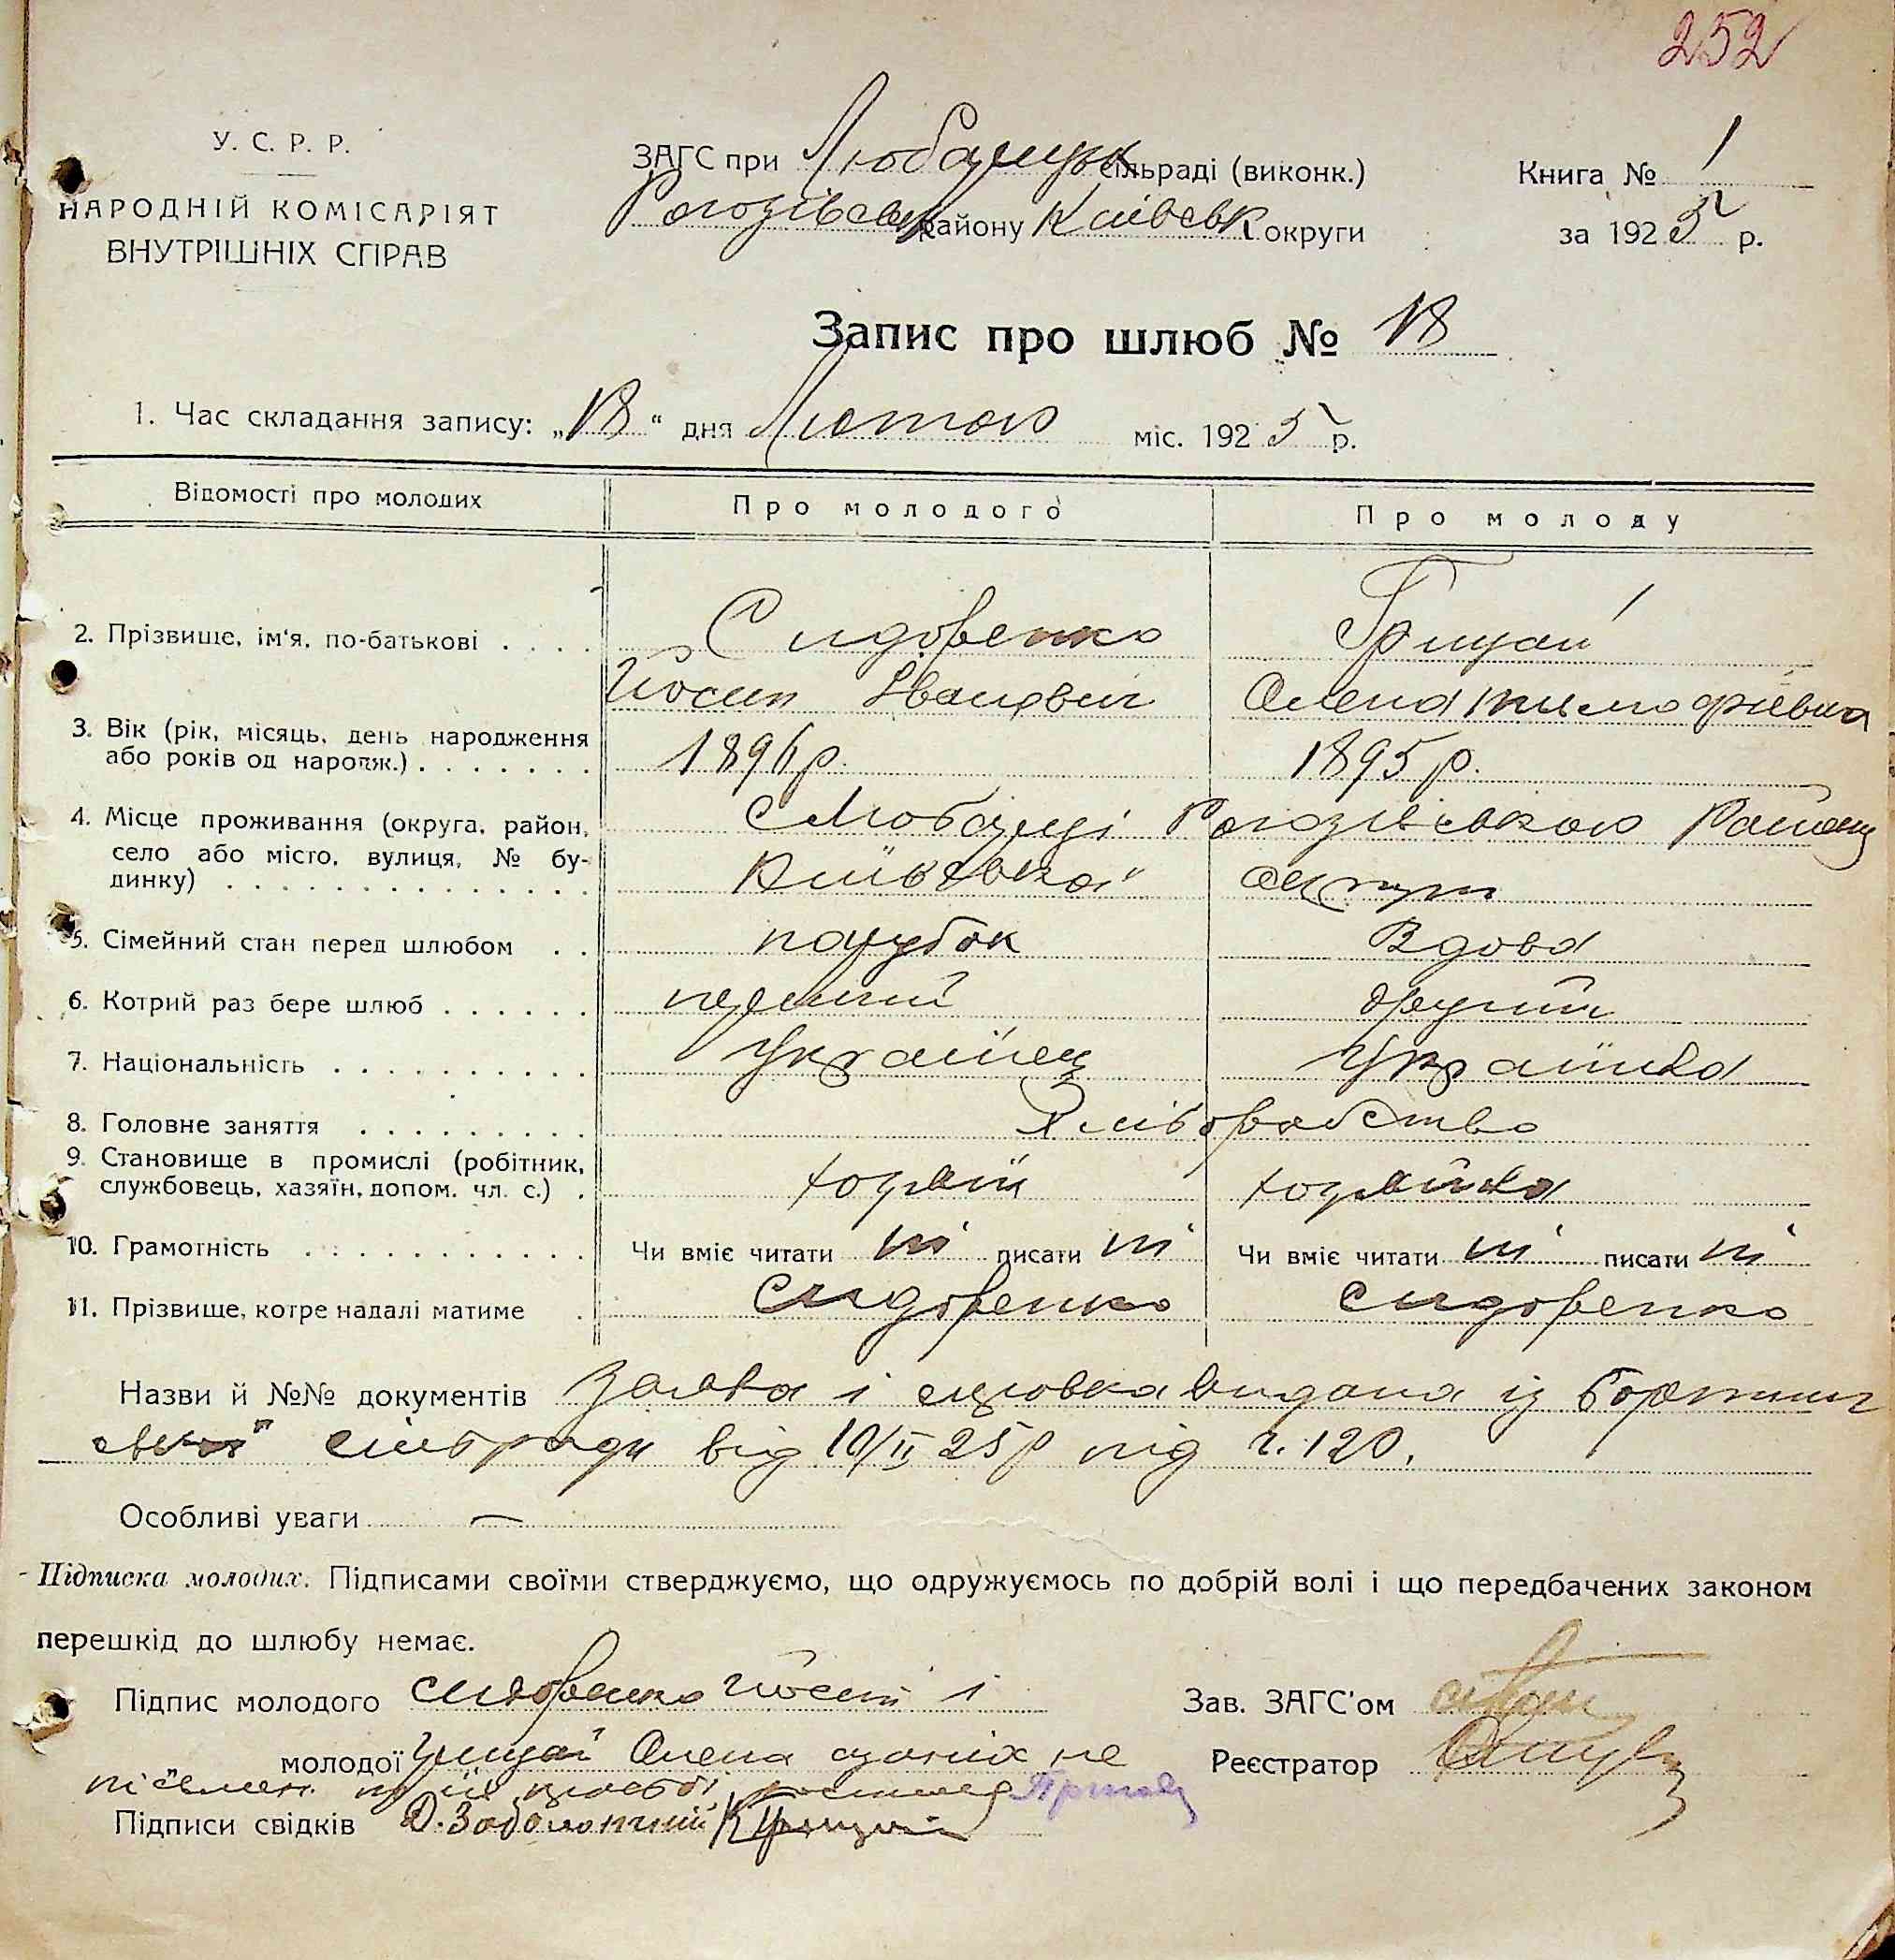 252
У. С. Р. Р.
НАРОДНІЙ КОМІСАРІЯТ
ВНУТРІШНІХ СПРАВ
ЗАГС при Любарцук сільраді (виконк.)
Рогозівськ району Київськ округи
Книга № 1
за 1925 р.
Запис про шлюб № 18
1. Час складання запису: „18“ дня Лютого міс. 1925 р.
Відомості про молодих Про молодого Про молоду
2. Прізвище, ім'я, по-батькові Сидоренко Грицай
Йосип Іванович Олена Тимофіївна
3. Вік (рік, місяць, день народження
або років од нарояж.) 1896р. 1895 р.
4. Місце проживання (округа, район, с Любарці Рогозівського Району
село або місто, вулиця, № бу-
динку) Київської округи
5. Сімейний стан перед шлюбом парубок Вдова
6. Котрий раз бере шлюб перший другий
7. Національність Українец Українка
8. Головне заняття Хліборобство
9. Становище в промислі (робітник,
службовець, хазяїн, допом. чл. с.) хозяїн хозяйка
10. Грамотність Чи вміє читати ні писати ні Чи вміє читати ні писати ні
11. Прізвище, котре надалі матиме Сидоренко Сидоренко
Назви й №№ документів Заява і видана із Бортнич
ської сільради від 10/II 25р під ч. 120.
Особливі уваги —
Підписка молодих. Підписами своїми стверджуємо, що одружуємось по добрій волі і що передбачених законом
перешкід до шлюбу немає.
Підпис молодого Сидоренко Йосип і
Зав. ЗАГС'ом
молодої Грицай Олена не
Реєстратор
письмен
Підписи свідків Д. Заболотний К Грицай